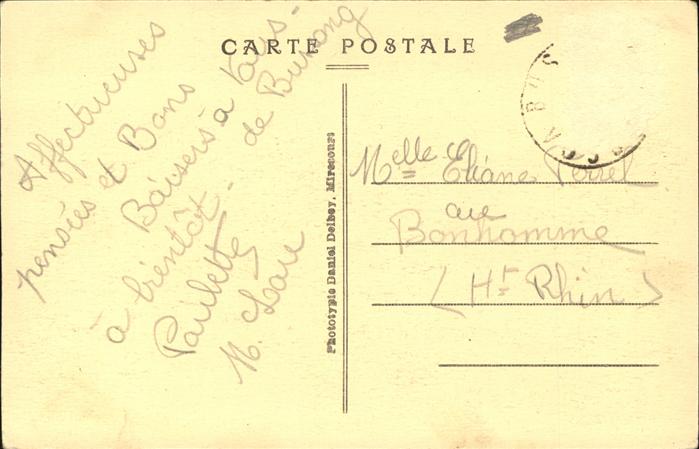 CARTE POSTALE
Affectueuses
pensées et Bons
Baisers à tous -
à bientôt - de Bussang
Paulette
M.
Phototypie Daniel Delboy, Mirecourt
Melle Eliane Perrel
au
Bonhomme
(Ht Rhin)